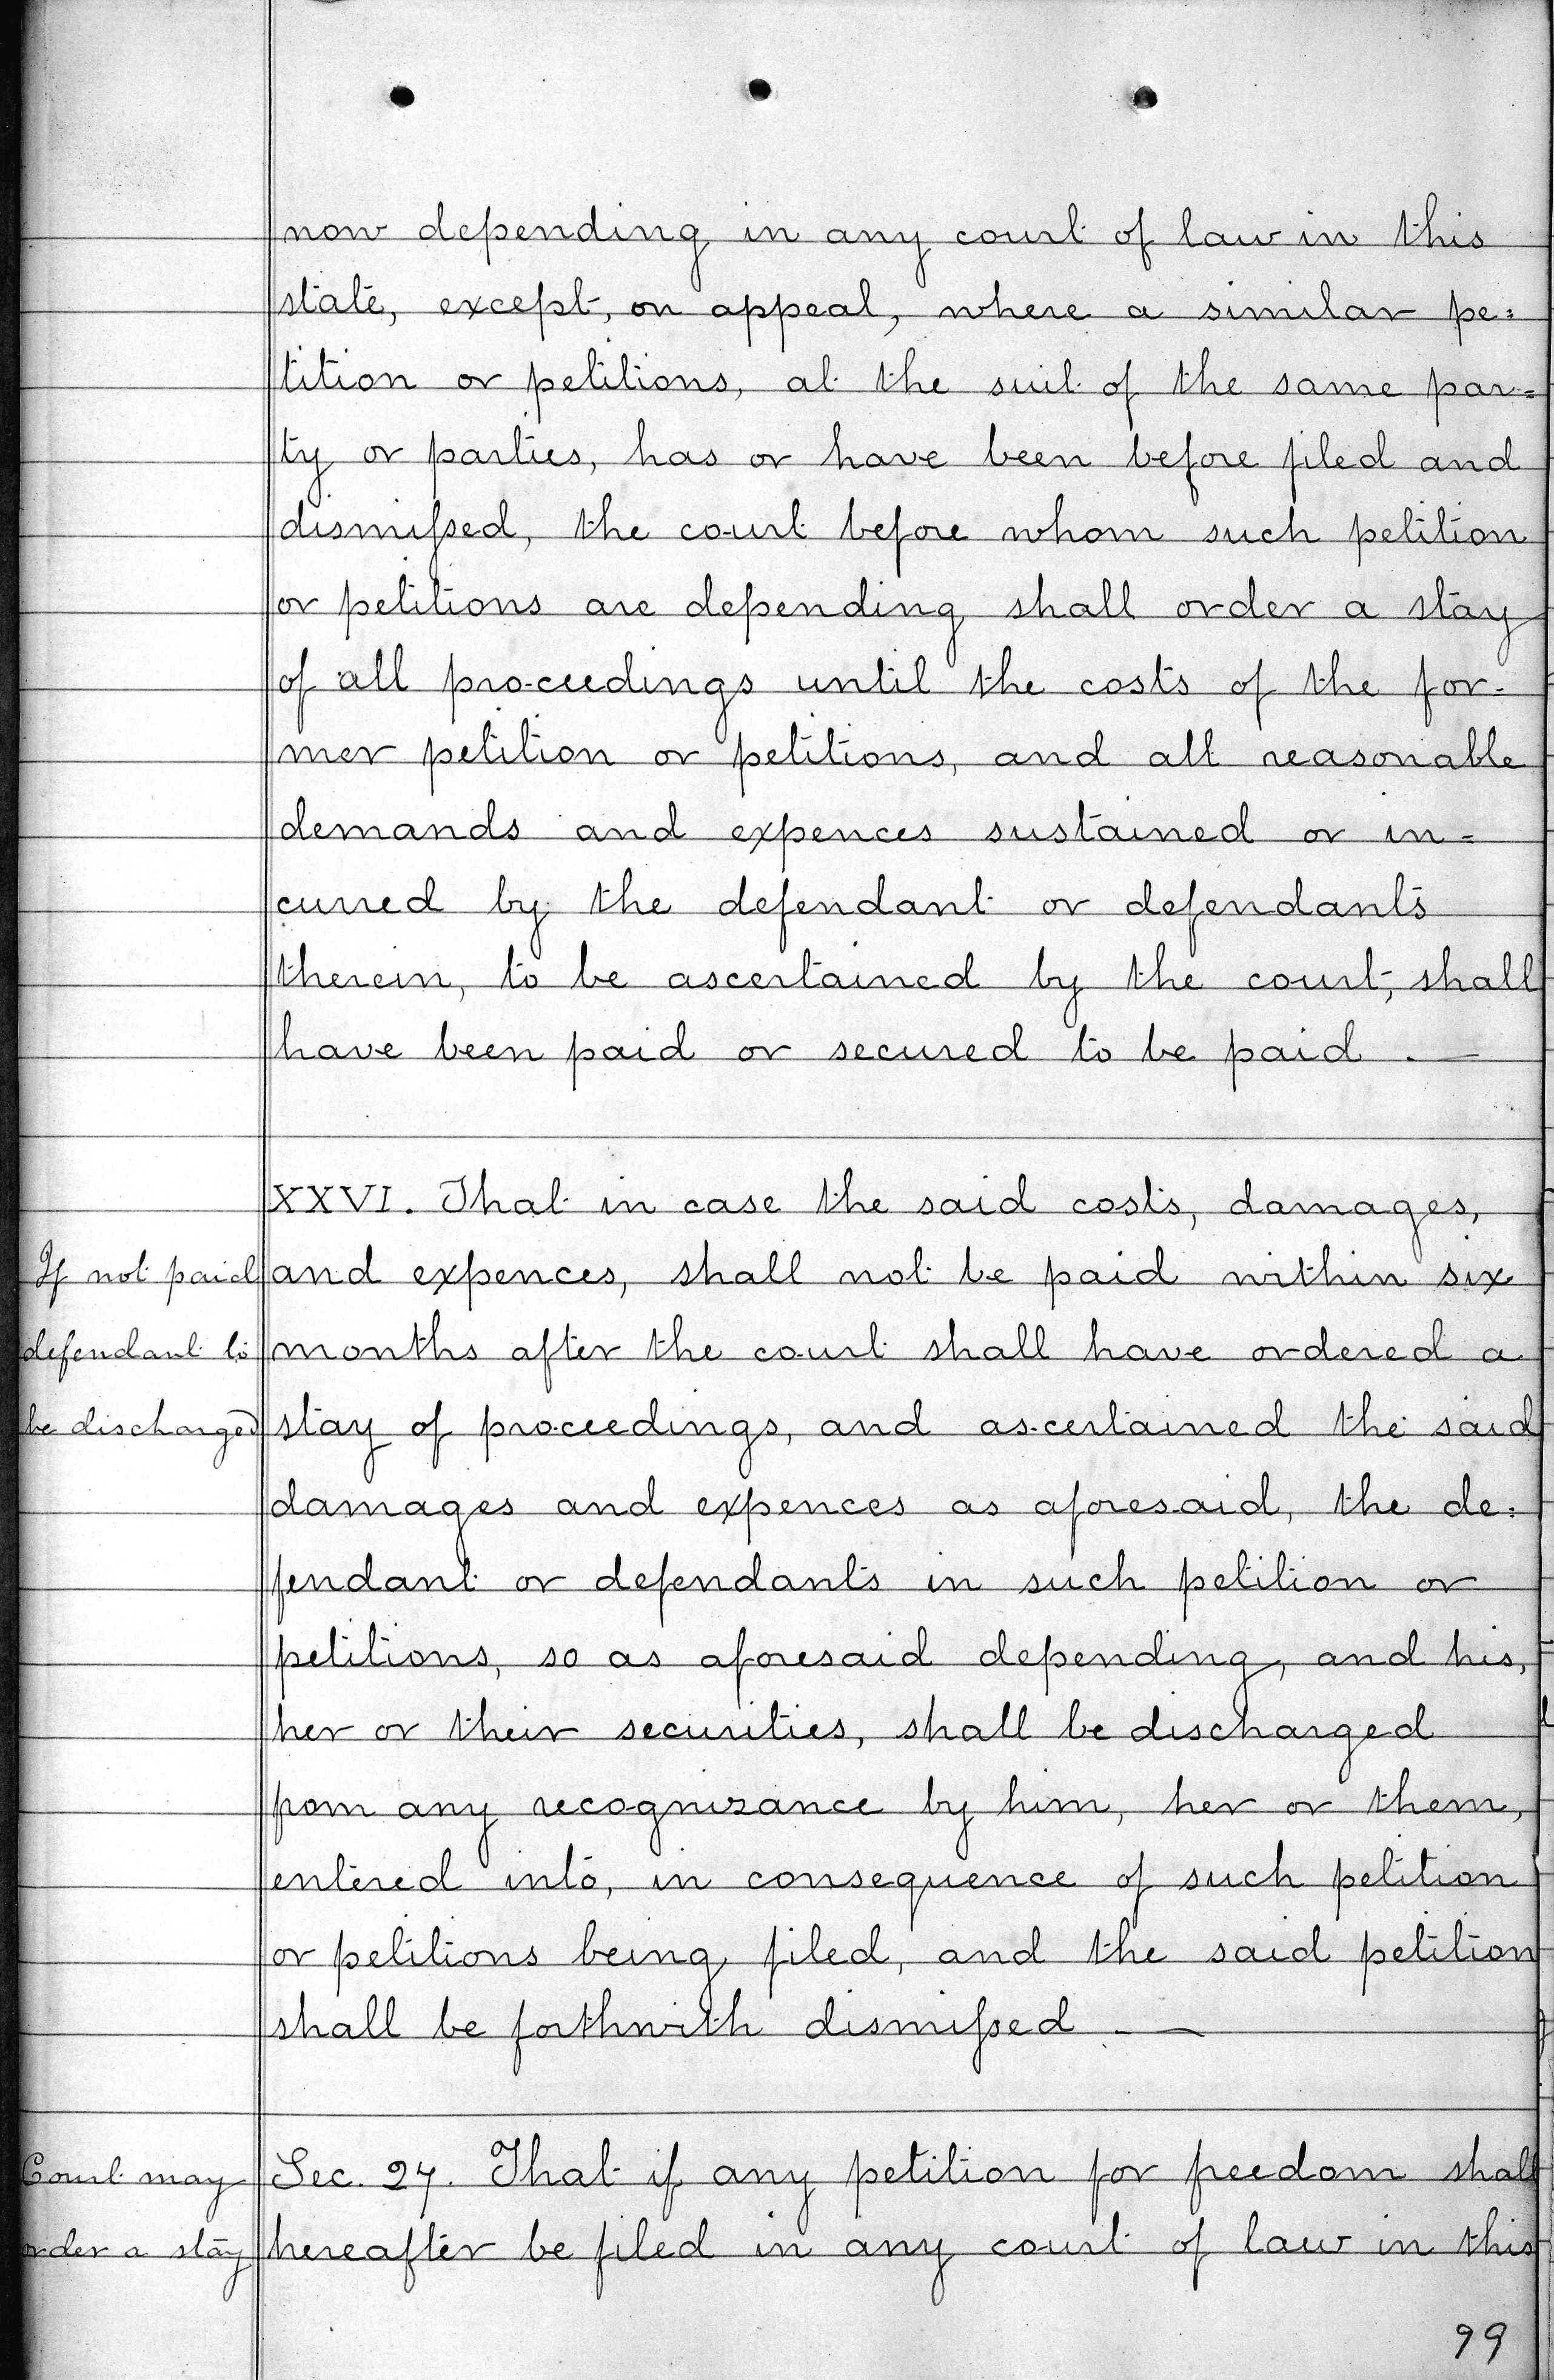 now depending in any court of law in this
state, except, on appeal, where a similar pe=
tition or petitions, at the suit of the same par=
ty or parties, has or have been before filed and
dismiſsed, the court before whom such petition
or petitions are depending shall order a stay
of all proceedings until the costs of the for-
mer petition or petitions, and all reasonable
demands and expences sustained or in=
curred by the defendant or defendants
therein, to be ascertained by the court, shall
have been paid or secured to be paid. —
XXVI. That in case the said costs, damages,
If not paid
and expences, shall not be paid within six
defendant to
months after the court shall have ordered a
be discharged
stay of proceedings, and ascertained the said
damages and expences as aforesaid, the de=
fendant or defendants in such petition or
petitions, so as aforesaid depending, and his,
her or their securities, shall be discharged
from any recognizance by him, her or them,
entered into, in consequence of such petition
or petitions being filed, and the said petition
shall be forthwith dismiſsed. —
Court may
Sec. 27. That if any petition for freedom shall
order a stay
hereafter be filed in any court of law in this
99